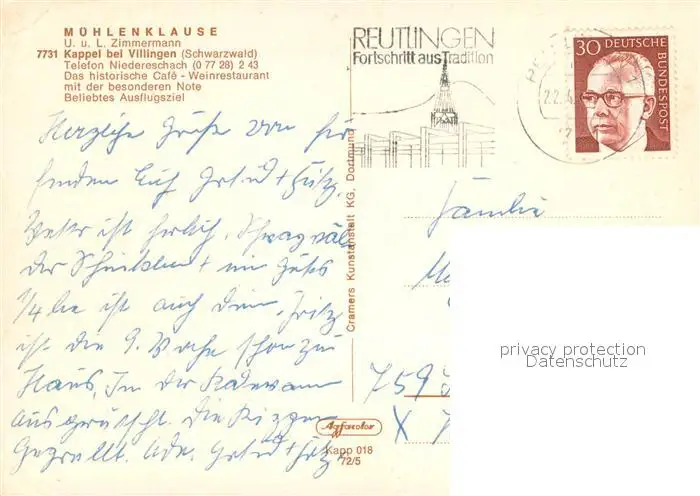 MÜHLENKLAUSE
U. u. L. Zimmermann
7731 Kappel bei Villingen (Schwarzwald)
Telefon Niedereschach (0 77 28) 2 43
Das historische Café - Weinrestaurant
mit der besonderen Note
Beliebtes Ausflugsziel
REUTLINGEN
Fortschritt aus Tradition
30 DEUTSCHE BUNDESPOST
Herzliche Grüße von hir
senden Euch Gertrud + Fritz.
Wetter ist herlich.
der Schinken + ein gutes
1/4 le ist auch drin. Fritz
ist die 9. Woche schon zu
Haus. In der Badewanne
ausgerutscht. Die Rippen
geprellt. Ade. Gertrud + Fritz
Familie
759
X 7
Cramers Kunstanstalt KG, Dortmund
Agfacolor
Kapp 018
72/5
privacy protection
Datenschutz